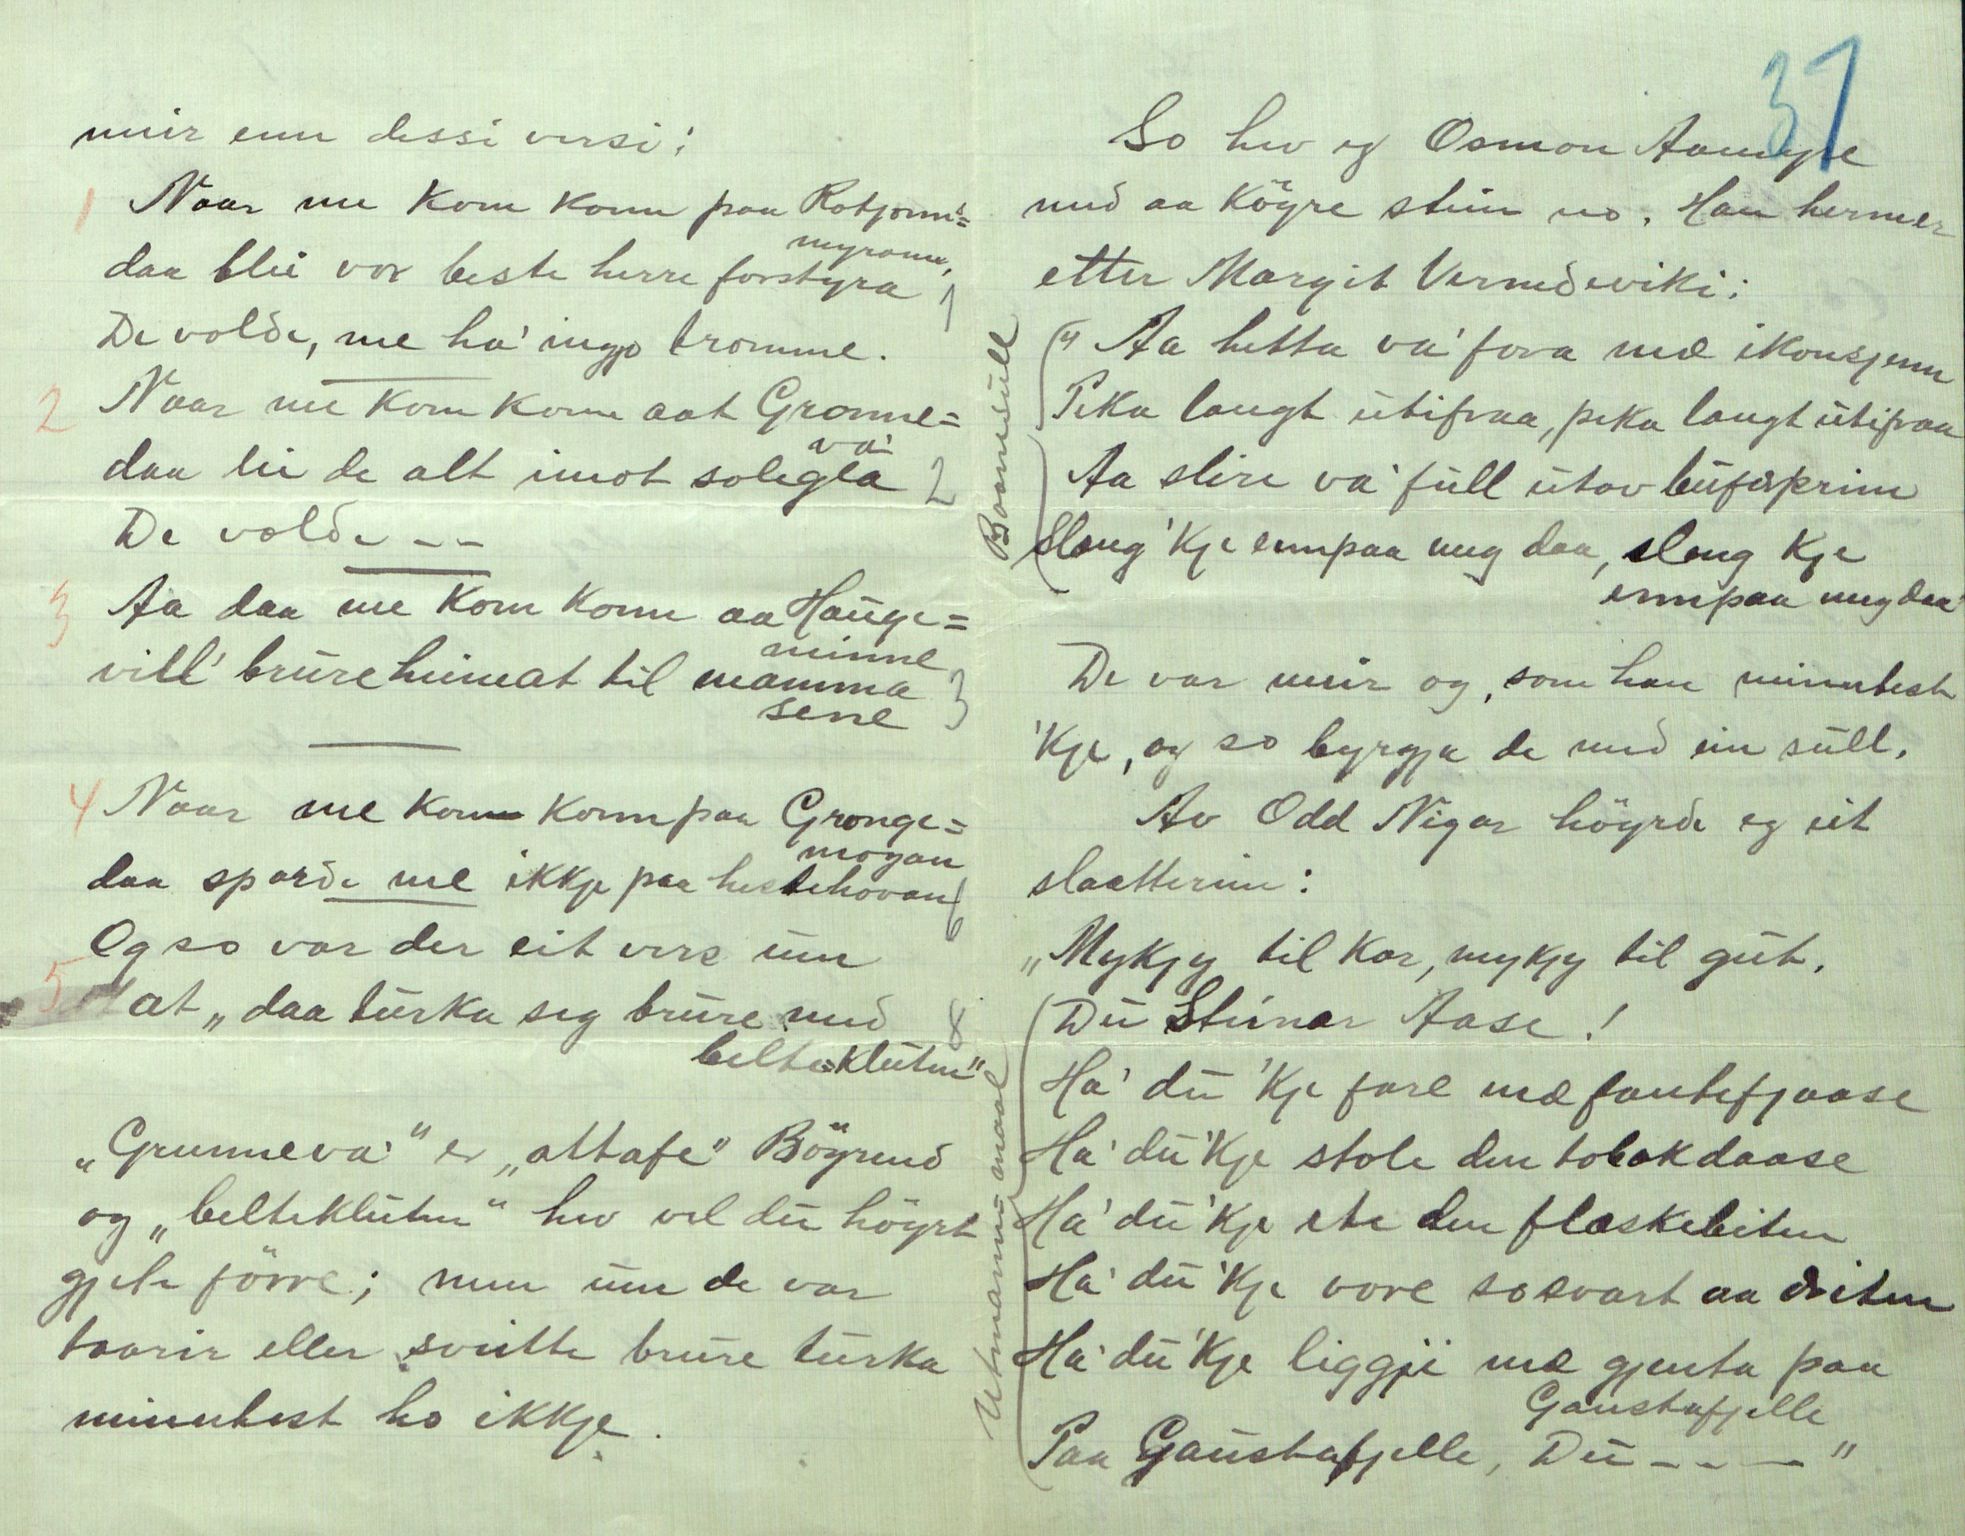 meir enn dessi versi:
1 Naar me kom konn paa Rotjønn=
myrane,
daa blei vor beste herre forstyra 1
De volde, me ha' ingjo tromme.
2 Naar me kom konn aat Gronne=
va'
daa lei de alt imot solegla 2
De volde – –
3 Aa daa me kom konn aa Hauge=
minne
vill' brure heimat til mamma 3
sene
4 Naar me kom konn paa Gronge=
mogan
daa sparde me ikkje paa hestehovan 6
Og so var der eit vers um
5 at „daa turka seg brure med 8
belte=kluten"
„Grunneva'" er „attafe" Böygrend
og „beltekluten" hev vel du höyrt
gjete förre; men um de var
taarir eller sveitte brure turka
minntest ho ikkje.
37
So hev eg Osmon Aamyre
med aa köyre stein no. Han hermer
etter Margit Vermedeviki:
Baansull
„Aa hetta va' fora mæ ikonsjenn
Peka langt utifraa, peka langt utifraa
Aa slire va' full utav bufeprim
Slæng 'kje ennpaa meg daa, slæng kje
ennpaa meg daa"
De var meir og, som han minntest
'kje, og so byrgja de med ein sull.
Av Odd Nigar höyrde eg eit
slaatterim:
„Mykjy til kar, mykjy til gut,
Utmannii-maal
Du Steinar Aase!
Ha' du 'kje fare mæ fantefjaase
Ha' du 'kje stole den tobakdaase
Ha' du 'kje ete den flæskebiten
Ha' du 'kje vore so svart aa driten
Ha' du 'kje liggji mæ gjenta paa
Gaustafjelle
Paa Gaustafjelle, Du – – – –"